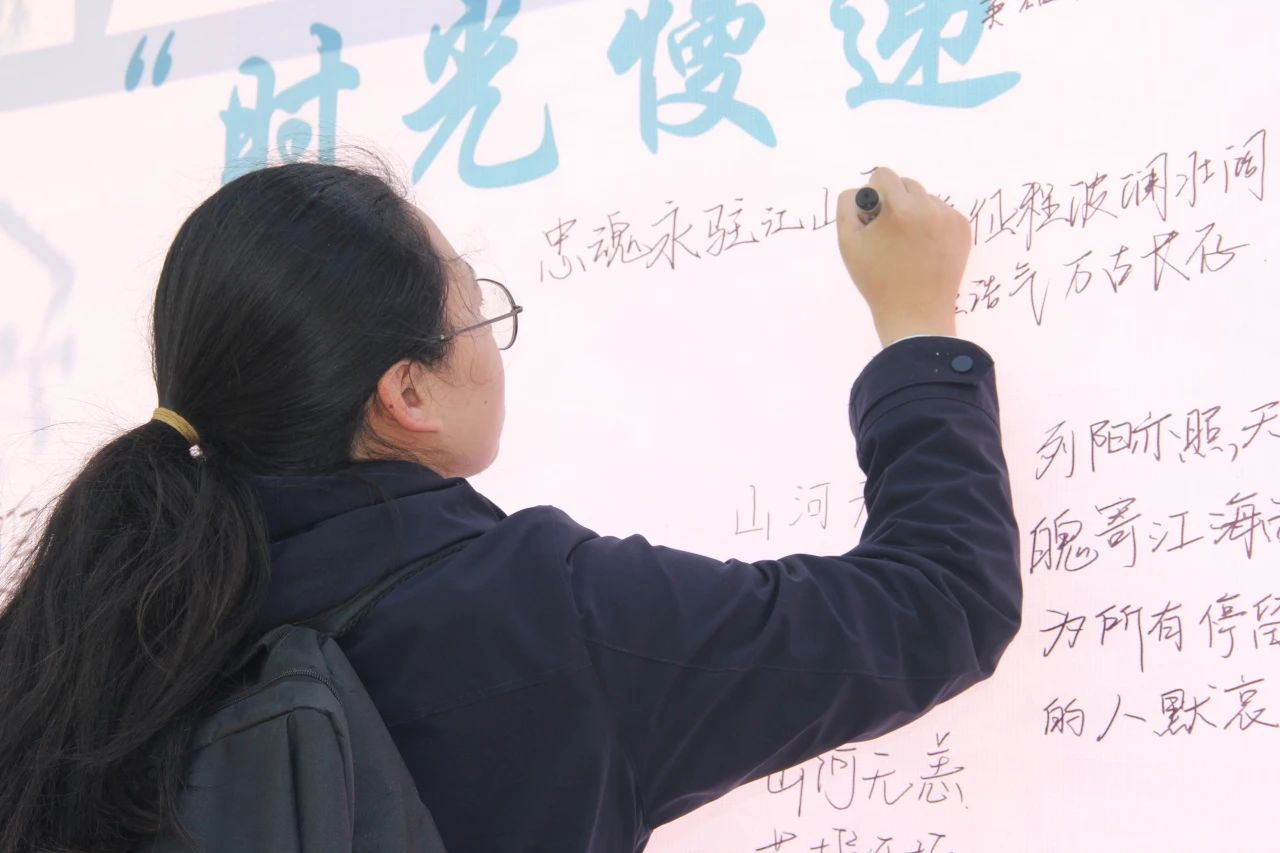 “时光慢递
英雄
忠魂永驻江山 征程波澜壮阔
浩气万古长存
列阳亦照天
山河
魄寄江海
为所有停留
的人默哀
山河无恙